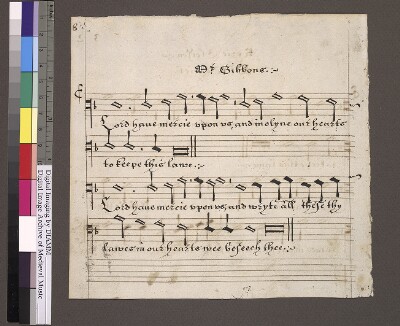 8
Mr Gibbons:~
Lord haue mercie vpon vs, and inclyne our hearts
to keepe this lawe:~
Lord haue mercie vpon vs, and wryte all these thy
lawes in our hearts wee beseech thee:~
Digital Imaging by DIAMM
Digital Image Archive of Medieval Music